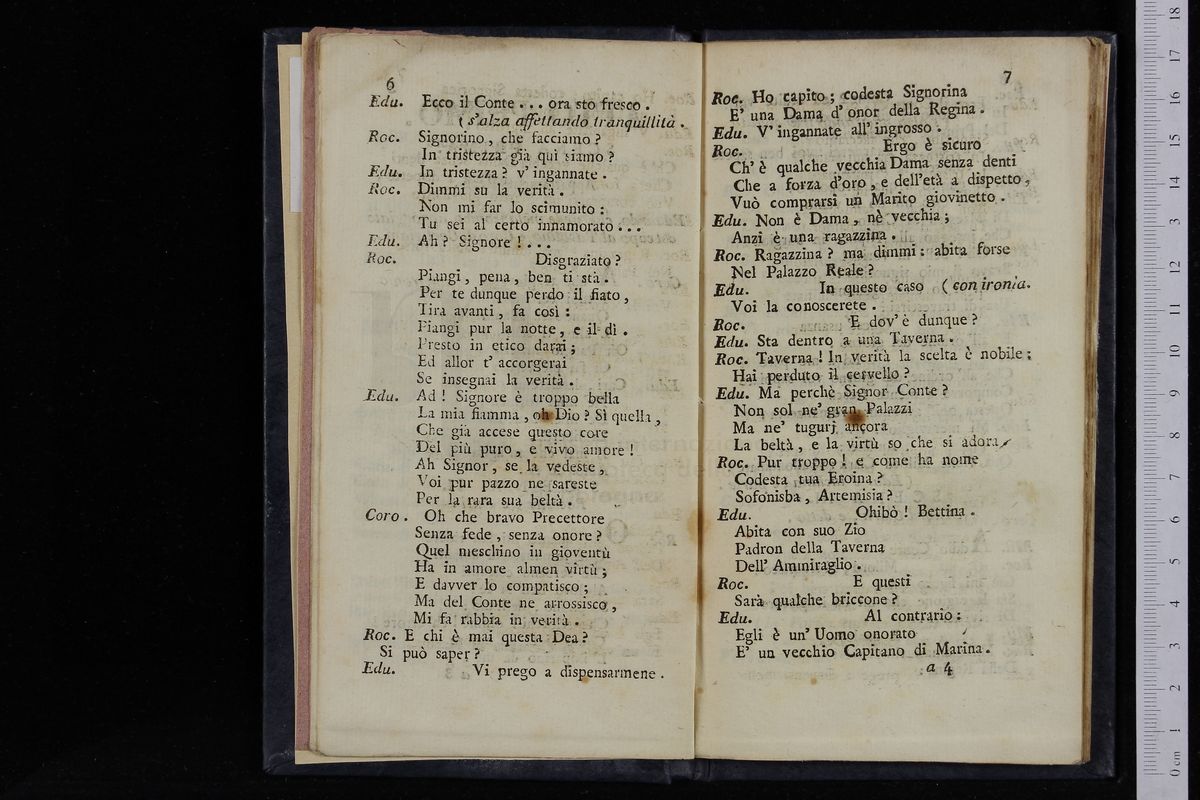 6
Edu. Ecco il Conte . . . ora sto fresco .
( s'alza affettando tranquillità .
Roc. Signorino , che facciamo ?
In tristezza già qui siamo ?
Edu. In tristezza ? v' ingannate .
Roc. Dimmi su la verità .
Non mi far lo scimunito :
Tu sei al certo innamorato . . .
Edu. Ah ? Signore ! . . .
Roc. Disgraziato ?
Piangi , pena , ben ti stà .
Per te dunque perdo il fiato ,
Tira avanti , fa così :
Piangi pur la notte , e il dì .
Presto in etico darai ;
Ed allor t' accorgerai
Se insegnai la verità .
Edu. Ad ! Signore è troppo bella
La mia fiamma , oh Dio ? Sì quella ,
Che già accese questo core
Del più puro , e vivo amore !
Ah Signor , se la vedeste ,
Voi pur pazzo ne sareste
Per la rara sua beltà .
Coro . Oh che bravo Precettore
Senza fede , senza onore ?
Quel meschino in gioventù
Ha in amore almen virtù ;
E davver lo compatisco ;
Ma del Conte ne arrossisco ,
Mi fa rabbia in verità .
Roc. E chi è mai questa Dea ?
Si può saper ?
Edu. Vi prego a dispensarmene .
7
Roc. Ho capito ; codesta Signorina
E' una Dama d' onor della Regina .
Edu. V' ingannate all' ingrosso .
Roc. Ergo è sicuro
Ch' è qualche vecchia Dama senza denti
Che a forza d'oro , e dell'età a dispetto ,
Vuò comprarsi un Marito giovinetto .
Edu. Non è Dama , nè vecchia ;
Anzi è una ragazzina .
Roc. Ragazzina ? ma dimmi : abita forse
Nel Palazzo Reale ?
Edu. In questo caso ( con ironia.
Voi la conoscerete .
Roc. E dov' è dunque ?
Edu. Sta dentro a una Taverna .
Roc. Taverna ! In verità la scelta è nobile ;
Hai perduto il cervello ?
Edu. Ma perchè Signor Conte ?
Non sol ne' gran Palazzi
Ma ne' tugurj ancora
La beltà , e la virtù so che si adora
Roc. Pur troppo ! e come ha nome
Codesta tua Eroina ?
Sofonisba , Artemisia ?
Edu. Ohibò ! Bettina .
Abita con suo Zio
Padron della Taverna
Dell' Ammiraglio .
Roc. E questi
Sarà qualche briccone ?
Edu. Al contrario :
Egli è un' Uomo onorato
E' un vecchio Capitano di Marina .
a 4
0 cm 1 2 3 4 5 6 7 8 9 10 11 12 13 14 15 16 17 18